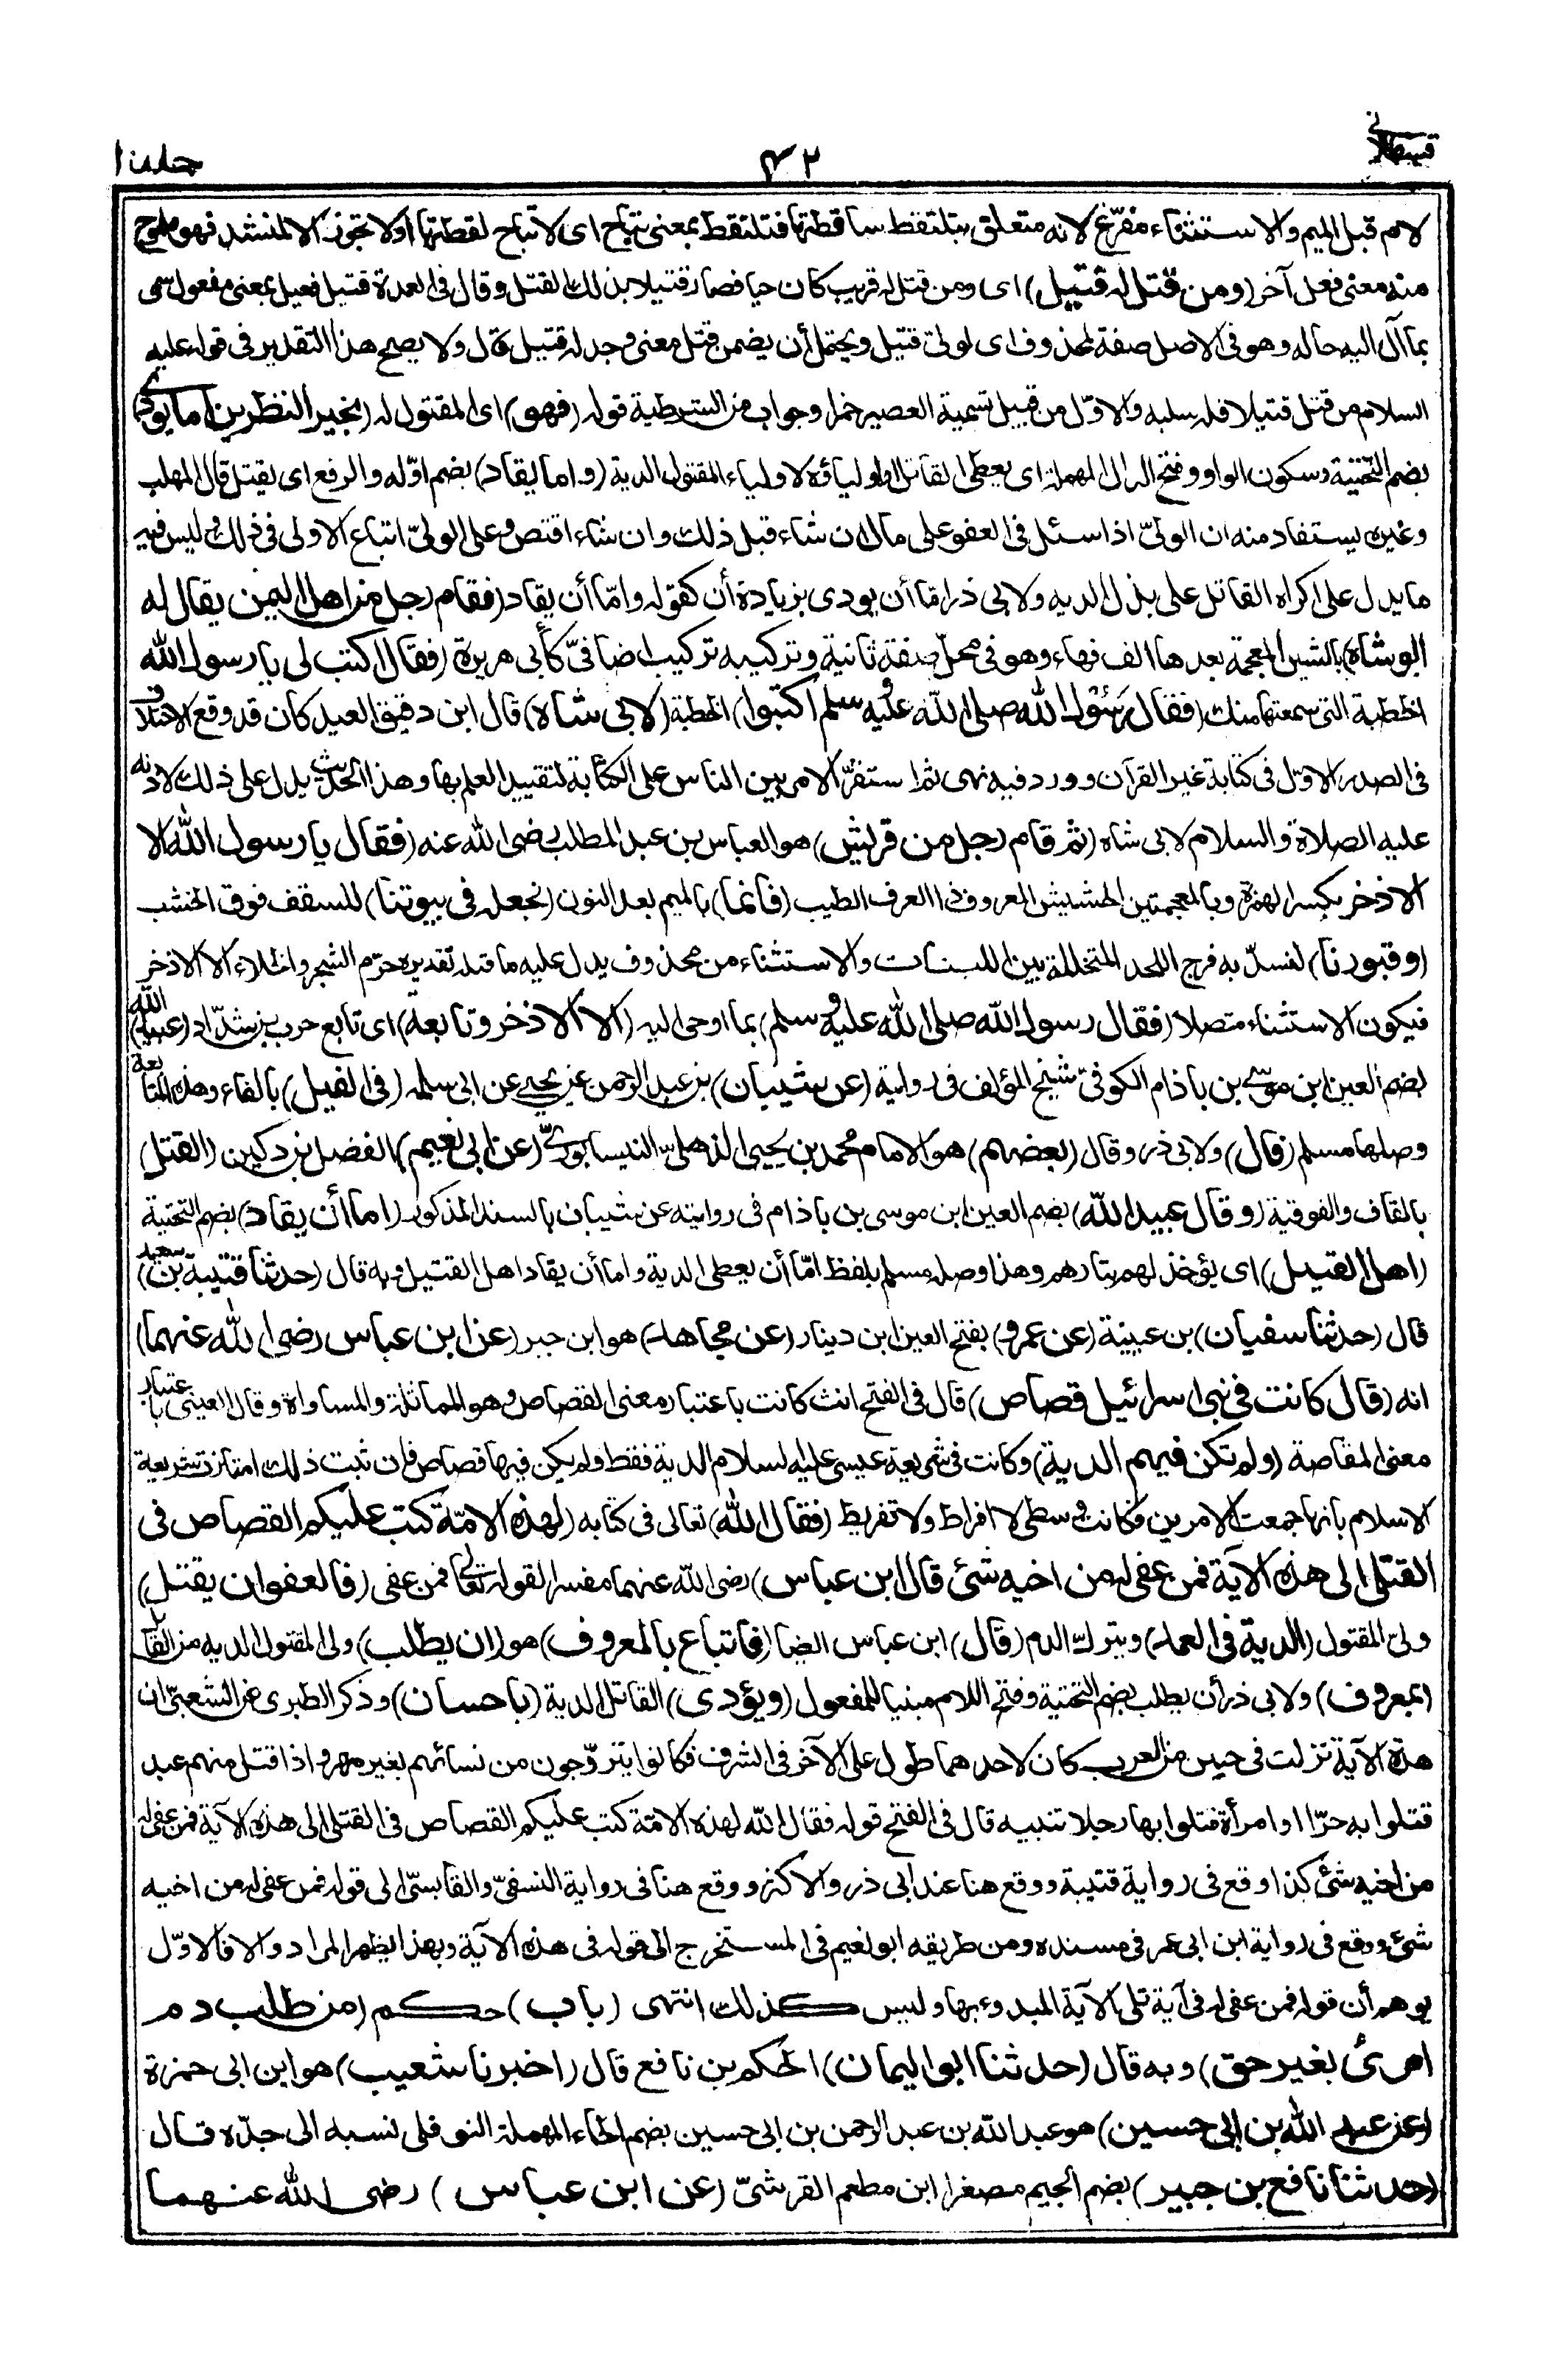 قسطلانى
٤٢
جلد ١٠
لام قبل الميم والاستثناء مفرّغ لانه متعلق بتلتقط ساقطتها فتلتقط بمعنى تباح اى لا تباح لقطتها اولا تجوز الا لمنشد فهو ملوح
منه معنى فعل آخر (ومن قتل له قتيل) اى ومن قتل له قريب كان حيا فصار قتيلا بذلك القتل وقال فى العدة قتيل فعيل بمعنى مفعول سمى
بما آل اليه حاله وهو فى الاصل صفة لمحذوف اى لولىّ قتيل ويحتمل أن يضمن قتل معنى وجد له قتيل قال ولا يصح هذا التقدير فى قوله عليه
السلام من قتل قتيلا فله سلبه والاوّل من قبيل تسمية العصير خمرا وجواب من الشرطية قوله (فهو) اى المقتول له (بخير النظرين اما يودى)
بضم التحتية وسكون الواو وفتح الدال المهملة اى يعطى القاتل او اولياؤه لاولياء المقتول الدية (واما يقاد) بضم اوّله والرفع اى يقتل قال المهلب
وغيره يستفاد منه ان الولىّ اذا سئل فى العفو على مال ان شاء قبل ذلك وان شاء اقتص وعلى الولىّ اتباع الاولى فى ذلك وليس فيه
ما يدل على اكراه القاتل على بذل الديه ولابى ذر امّا أن يودى بزيادة أن كقوله وامّا أن يقاد (فقام رجل من اهل اليمن يقال له
ابو شاه) بالشين المعجمة بعدها الف فهاء وهو فى محل صفة ثانية وتركيبه تركيب اضافىّ كأبى هريرة (فقال اكتب لى يا رسول الله
الخطبة التى سمعتها منك (فقال رسول الله صلى الله عليه وسلم اكتبوا) الخطبة (لابى شاه) قال ابن دقيق العيد كان قد وقع الاختلاف
فى الصدر الاوّل فى كتابة غير القرآن وورد فيه نهى ثم استقرّ الامر بين الناس على الكتابة لتقييد العلم بها وهذا الحديث يدل على ذلك لاذنه
عليه الصلاة والسلام لابى شاه (ثم قام رجل من قريش) هو العباس بن عبد المطلب رضى الله عنه (فقال يا رسول الله الا
الاذخر بكسر الهمزة وبالمعجمتين الحشيش المعروف ذا العرف الطيب (فانما) بالميم بعد النون (نجعله فى بيوتنا) للسقف فوق الخشب
(وقبورنا) لنسدّ به فرج اللحد المتخللة بين اللبنات والاستثناء من محذوف يدل عليه ما قبله تقديره حرّم الشجر والخلاء الا الاذخر
فيكون الاستثناء متصلا (فقال رسول الله صلى الله عليه وسلم) بما اوحى اليه (الا الاذخر وتابعه) اى تابع حرب بن شدّاد (عبيد الله)
بضم العين ابن موسى بن باذام الكوفىّ شيخ المؤلف فى رواية (عن شيبان) بن عبد الرحمن عن يحيى عن ابى سلمة (فى الفيل) بالفاء وهذه المتابعة
وصلها مسلم (قال) ولابى ذر وقال (بعضهم) هو الامام محمد بن يحيى الذهلىّ النيسابورىّ (عن ابى نعيم) الفضل بن دكين (القتل)
بالقاف والفوقية (وقال عبيد الله) بضم العين ابن موسى بن باذام فى روايته عن شيبان بالسند المذكور (اما أن يقاد) بضم التحتية
(اهل القتيل) اى يؤخذ لهم بثارهم وهذا وصله مسلم بلفظ امّا أن يعطى الدية واما أن يقاد اهل القتيل وبه قال (حدثنا قتيبة بن سعيد)
قال (حدثنا سفيان) بن عيينة (عن عمرو) بفتح العين ابن دينار (عن مجاهد) هو ابن جبر (عن ابن عباس رضى الله عنهما)
انه (قال كانت فى بنى اسرائيل قصاص) قال فى الفتح انث كانت باعتبار معنى القصاص وهو المماثلة والمساواة وقال العينى باعتبار
معنى المقاصة (ولم تكن فيهم الدية) وكانت فى شريعة عيسى عليه السلام الدية فقط ولم يكن فيها قصاص فان ثبت ذلك امتازت شريعة
الاسلام بانها جمعت الامرين فكانت وسطى لا افراط ولا تفريط (فقال الله) تعالى فى كتابه (لهذه الامّة كتب عليكم القصاص فى
القتلى الى هذه الآية فمن عفى له من اخيه شئ قال ابن عباس) رضى الله عنهما مفسرا لقوله تعالى فمن عفى (فالعفو ان يقبل)
ولىّ المقتول (الدية فى العمد) ويترك الدم (قال) ابن عباس ايضا (فاتباع بالمعروف) هو (ان يطلب) ولى المقتول الديه من القاتل
(بمعروف) ولابى ذر أن يطلب بضم التحتية وفتح اللام مبنيا للمفعول (ويؤدى) القاتل الدية (باحسان) وذكر الطبرى عن الشعبىّ ان
هذه الآية نزلت فى حيين من العرب كان لاحدهما طول على الآخر فى الشرف فكانوا يتزوّجون من نسائهم بغير مهر واذا قتل منهم عبد
قتلوا به حرّا او امرأة قتلوا بها رجلا تنبيه قال فى الفتح قوله فقال الله لهذه الامّة كتب عليكم القصاص فى القتلى الى هذه الآية فمن عفى له
من اخيه شئ كذا وقع فى رواية قتيبة ووقع هنا عند ابى ذر والاكثر ووقع هنا فى رواية النسفىّ والقابسىّ الى قوله فمن عفى له من اخيه
شئ ووقع فى رواية ابن ابى عمر فى مسنده ومن طريقه ابو نعيم فى المستخرج الى قوله فى هذه الآية وبهذا يظهر المراد والا فالاوّل
يوهم أن قوله فمن عفى له فى آية تلى الآية المبدوء بها وليس كذلك انتهى (باب) حكم (من طلب دم
امرئ بغير حق) وبه قال (حدثنا ابو اليمان) الحكم بن نافع قال (اخبرنا شعيب) هو ابن ابى حمزة
(عن عبد الله بن ابى حسين) هو عبد الله بن عبد الرحمن بن ابى حسين بضم الحاء المهملة النوفلى نسبه الى جدّه قال
(حدثنا نافع بن جبير) بضم الجيم مصغرا ابن مطعم القرشىّ (عن ابن عباس) رضى الله عنهما